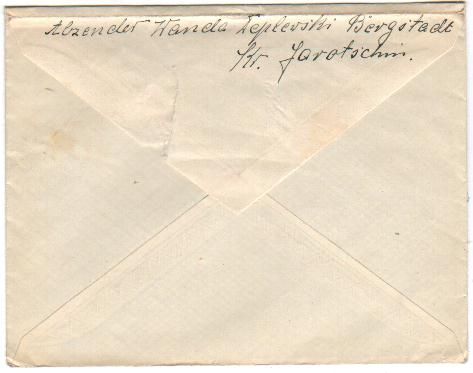 Abzender Wanda Teplevski Bergstadt
Kr. Jarotschin.